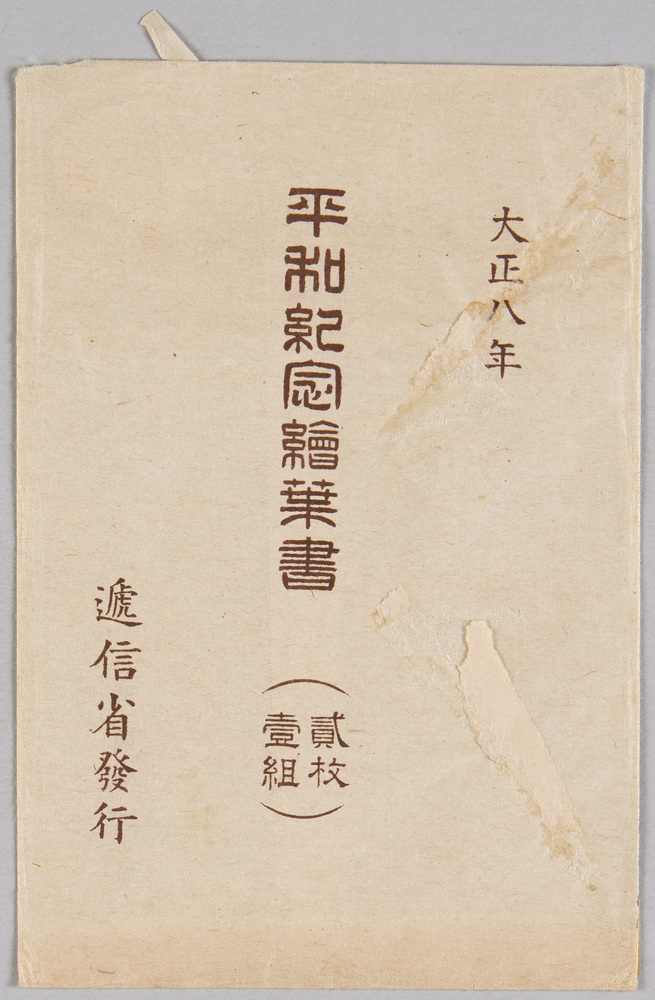 大正八年
平和紀念繪葉書
(貳枚
壹組)
遞信省發行